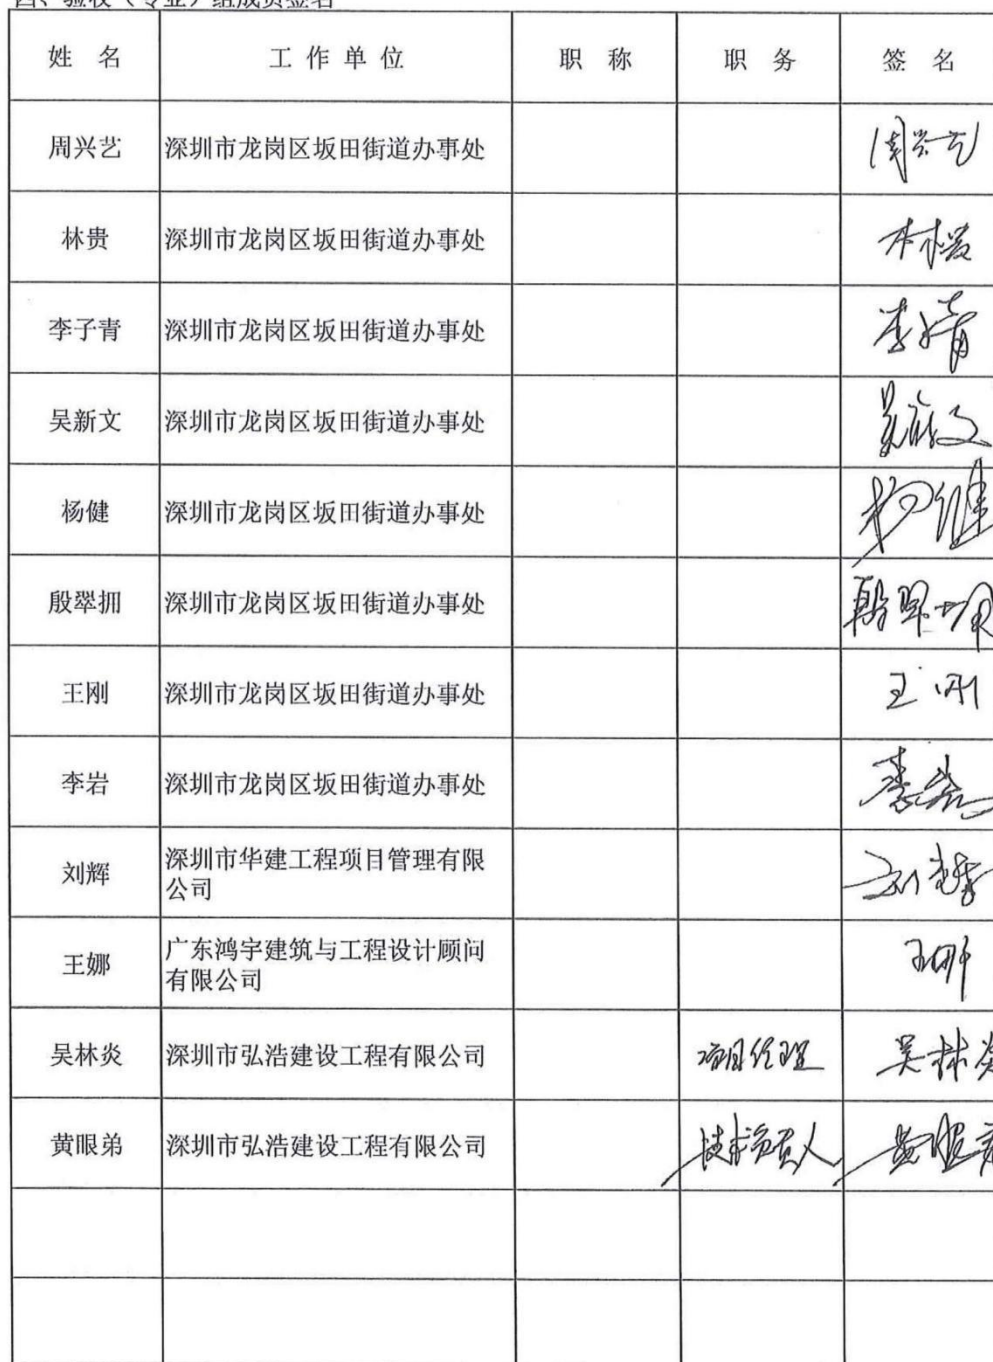 四、验收（专业）组成员签名
姓 名 工 作 单 位 职 称 职 务 签 名
周兴艺 深圳市龙岗区坂田街道办事处 周兴艺
林贵 深圳市龙岗区坂田街道办事处
李子青 深圳市龙岗区坂田街道办事处 李子青
吴新文 深圳市龙岗区坂田街道办事处 吴新文
杨健 深圳市龙岗区坂田街道办事处 杨健
殷翠拥 深圳市龙岗区坂田街道办事处 殷翠拥
王刚 深圳市龙岗区坂田街道办事处 王刚
李岩 深圳市龙岗区坂田街道办事处 李岩
刘辉 深圳市华建工程项目管理有限
公司 刘辉
王娜 广东鸿宇建筑与工程设计顾问
有限公司 王娜
吴林炎 深圳市弘浩建设工程有限公司 项目经理 吴林炎
黄眼弟 深圳市弘浩建设工程有限公司 技术负责人 黄眼弟